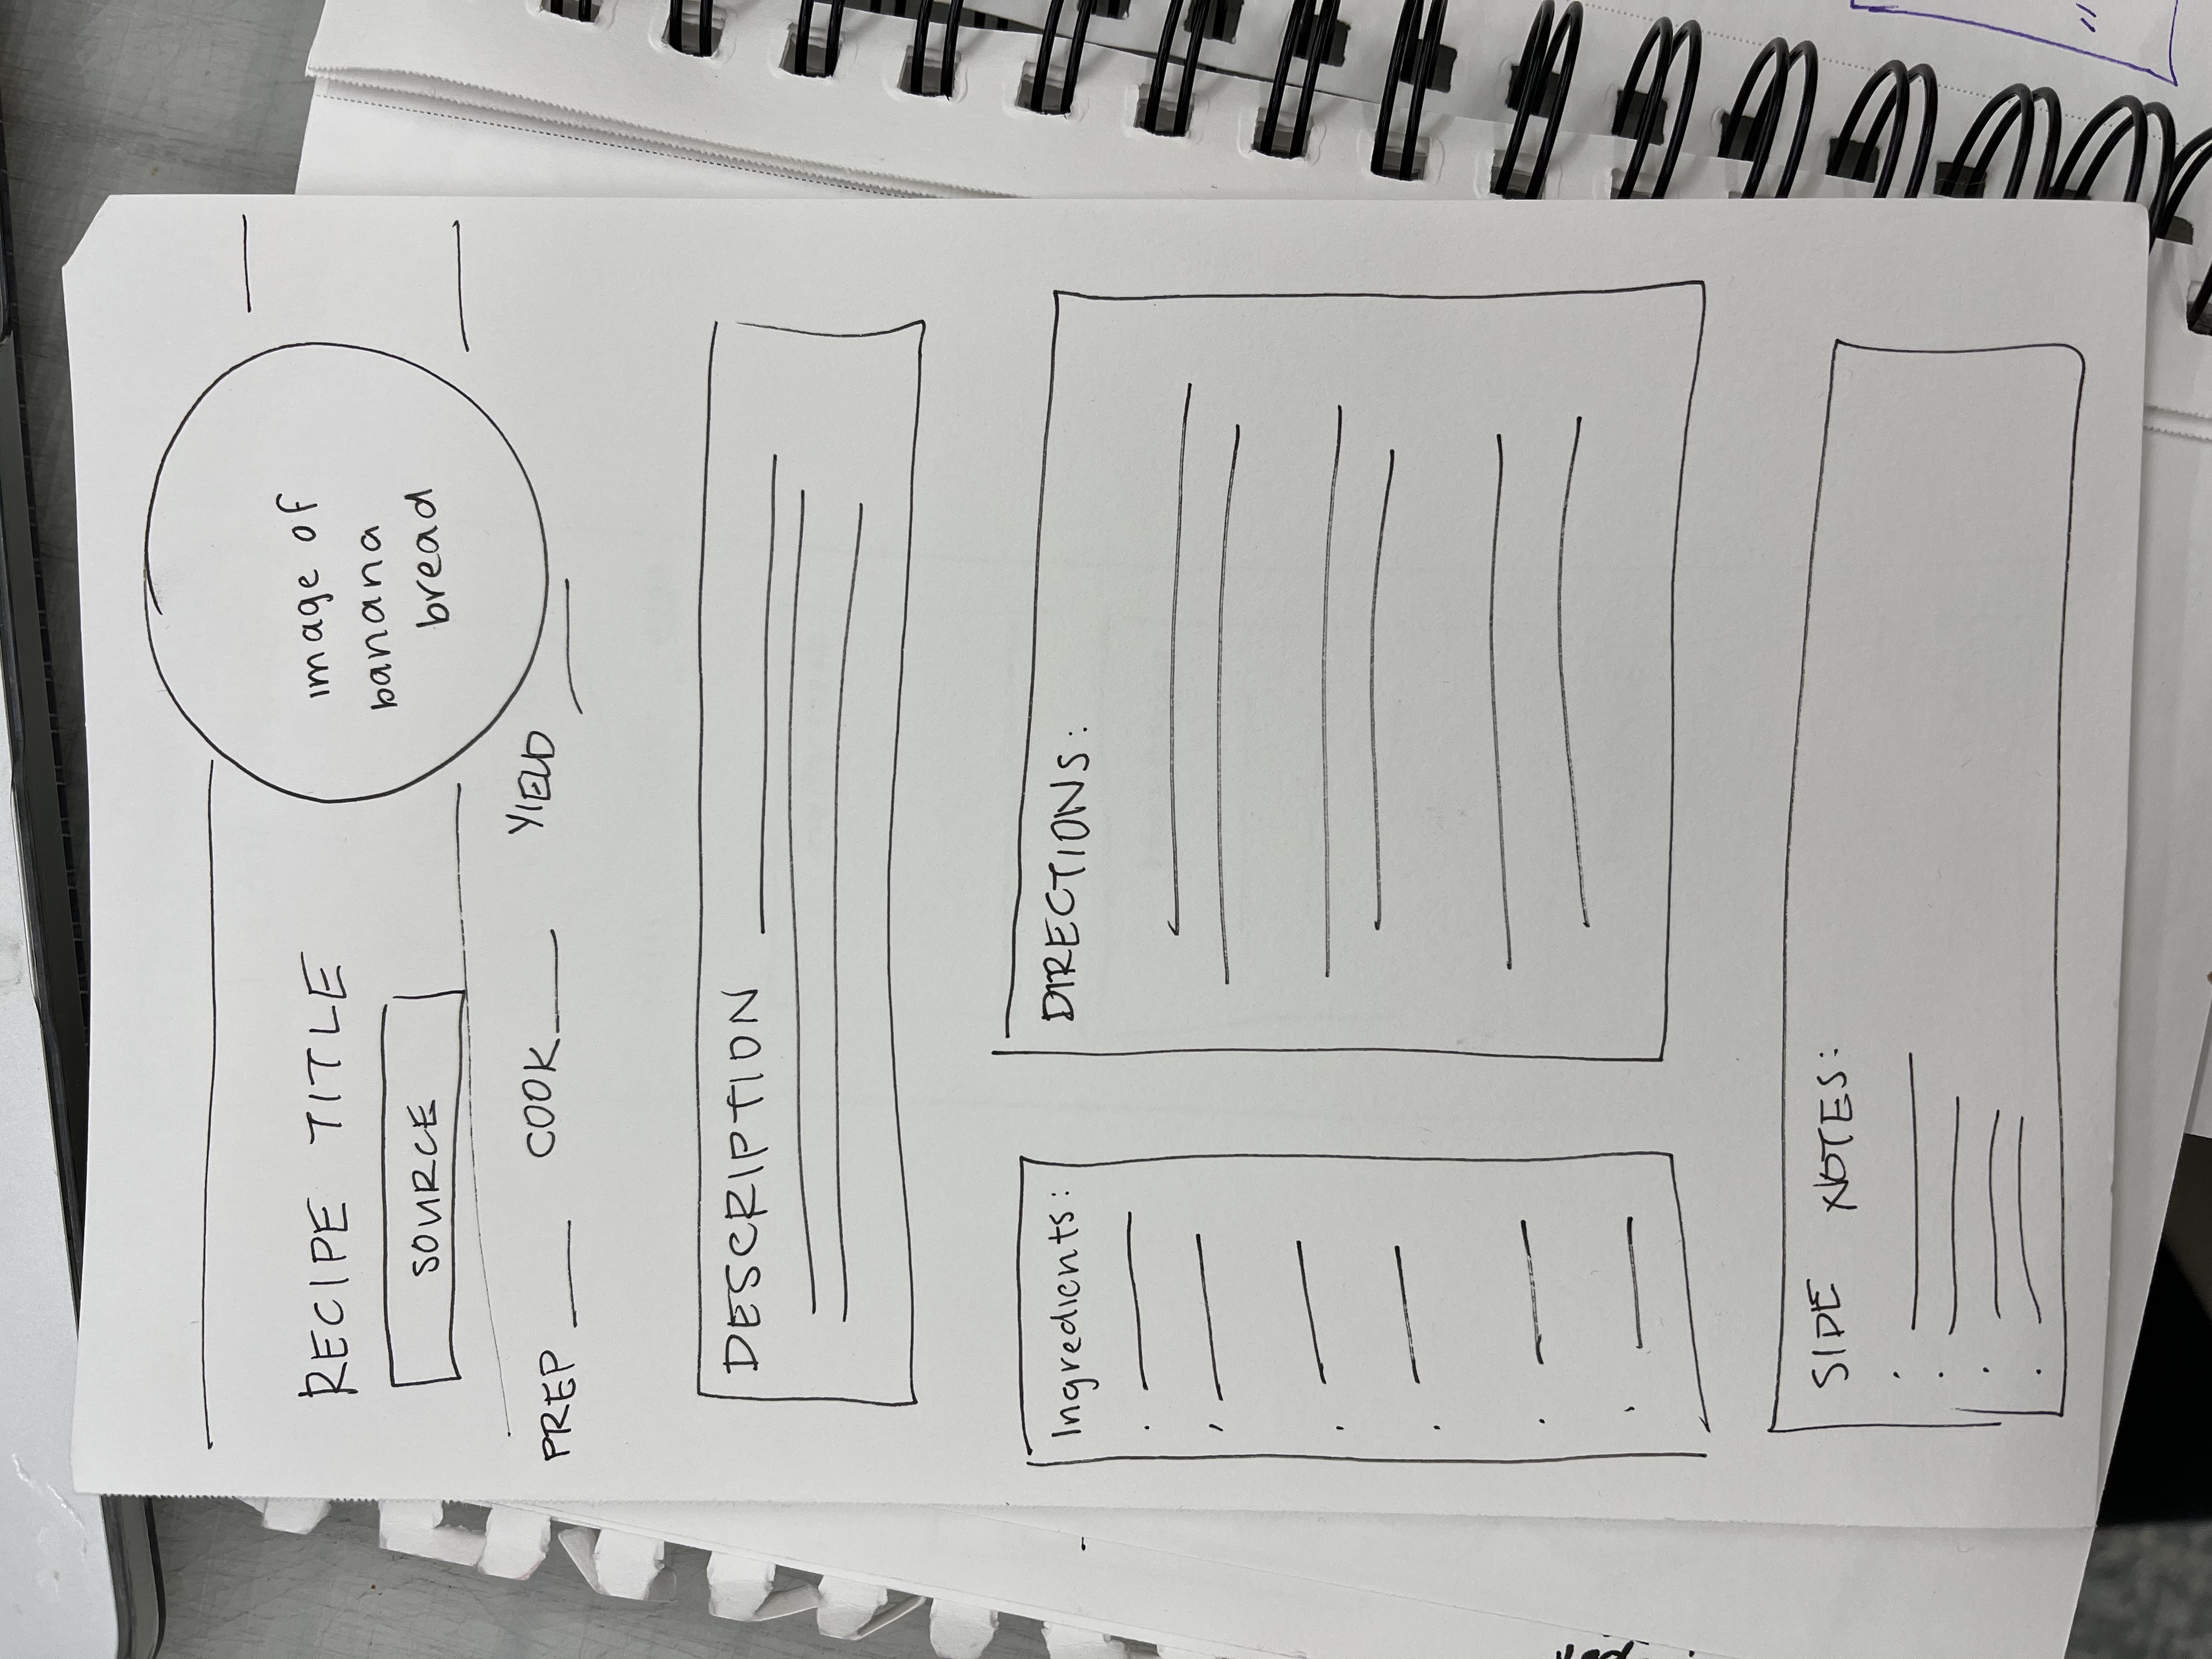 RECIPE TITLE
SOURCE
image of
banana
bread
PREP
COOK
YIELD
DESCRIPTION
Ingredients:
DIRECTIONS:
SIDE NOTES: